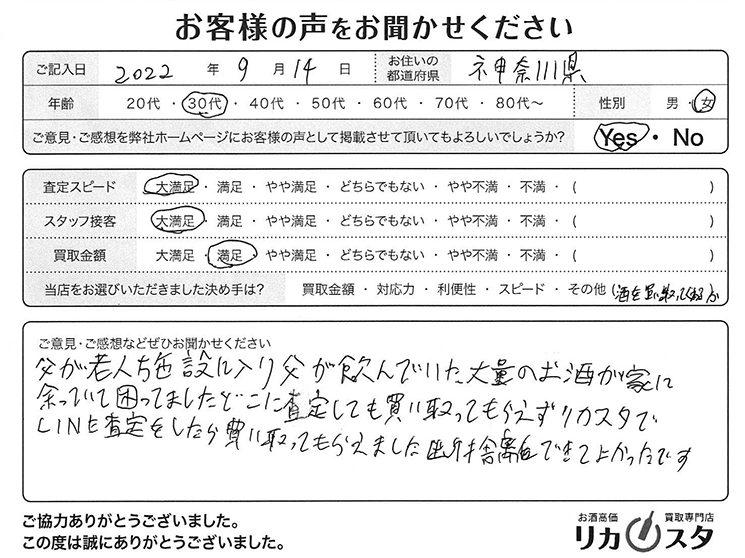 お客様の声をお聞かせください
ご記入日 2022 年 9 月 14 日 お住いの都道府県 神奈川県
年齢 20代・30代・40代・50代・60代・70代・80代～ 性別 男・女
ご意見・ご感想を弊社ホームページにお客様の声として掲載させて頂いてもよろしいでしょうか? Yes・No
査定スピード 大満足・満足・やや満足・どちらでもない・やや不満・不満・( )
スタッフ接客 大満足・満足・やや満足・どちらでもない・やや不満・不満・( )
買取金額 大満足・満足・やや満足・どちらでもない・やや不満・不満・( )
当店をお選びいただきました決め手は? 買取金額・対応力・利便性・スピード・その他(酒を買い取ってくれるか
ご意見・ご感想などぜひお聞かせください
父が老人施設に入り父が飲んでいた大量のお酒が家に
余っていて困ってましたどこに査定しても買い取ってもらえずリカスタで
LINE査定をしたら買い取ってもらえました断捨離できてよかったです
ご協力ありがとうございました。
この度は誠にありがとうございました。
お酒高価 買取専門店
リカスタ